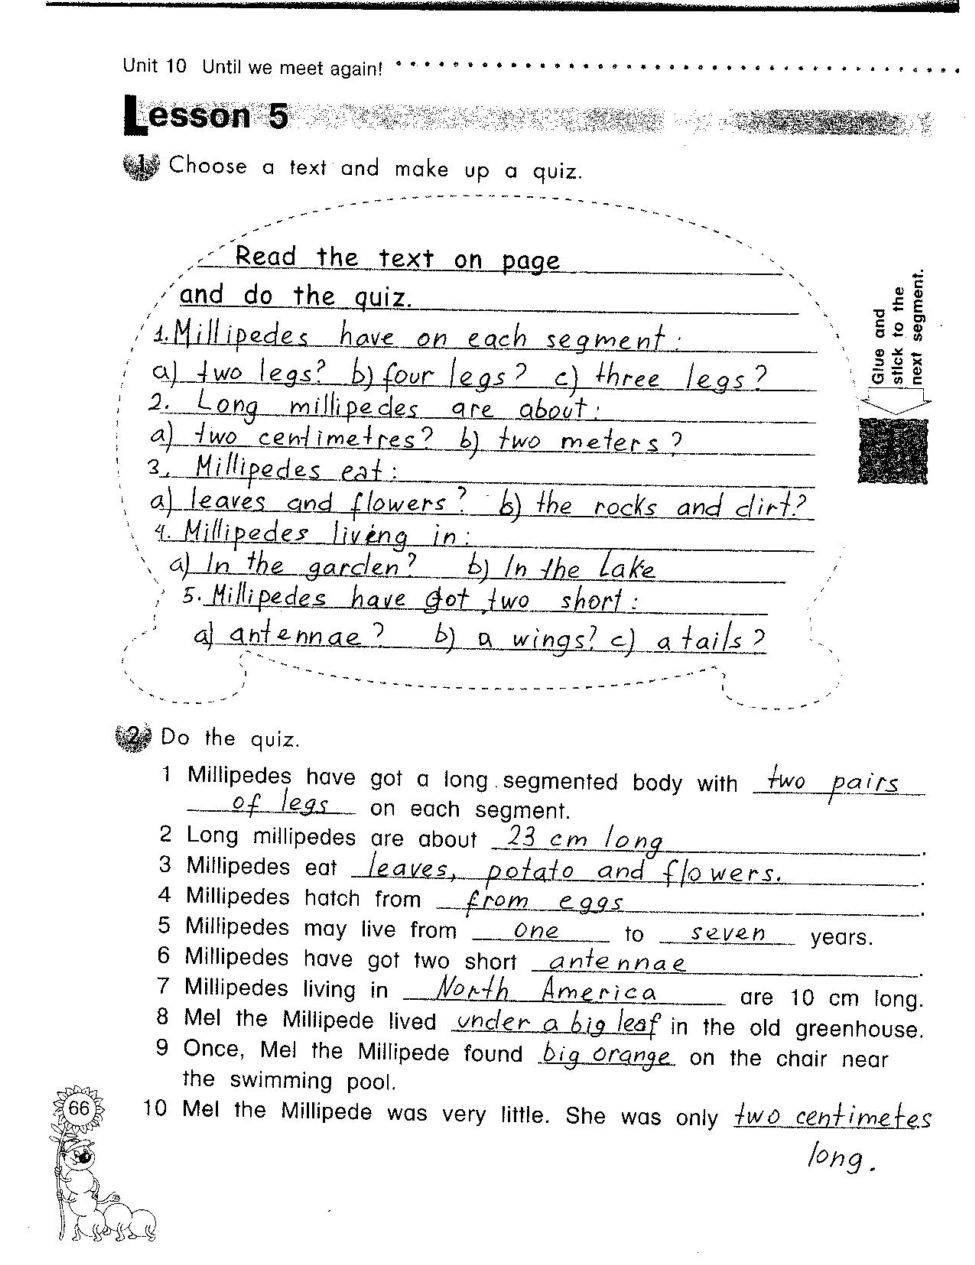 Unit 10 Until we meet again!
Lesson 5
1 Choose a text and make up a quiz.
Read the text on page
and do the quiz.
1. Millipedes have on each segment:
a) two legs? b) four legs? c) three legs?
2. Long millipedes are about:
a) two centimetres? b) two meters?
3. Millipedes eat:
a) leaves and flowers? b) the rocks and dirt?
4. Millipedes living in:
a) In the garden? b) In the lake
5. Millipedes have got two short:
a) antennae? b) a wings? c) a tails?
Glue and
stick to the
next segment.
2 Do the quiz.
1 Millipedes have got a long segmented body with two pairs
of legs on each segment.
2 Long millipedes are about 23 cm long.
3 Millipedes eat leaves, potato and flowers..
4 Millipedes hatch from from eggs.
5 Millipedes may live from one to seven years.
6 Millipedes have got two short antennae.
7 Millipedes living in North America are 10 cm long.
8 Mel the Millipede lived under a big leaf in the old greenhouse.
9 Once, Mel the Millipede found big orange on the chair near
the swimming pool.
10 Mel the Millipede was very little. She was only two centimetes
long.
66